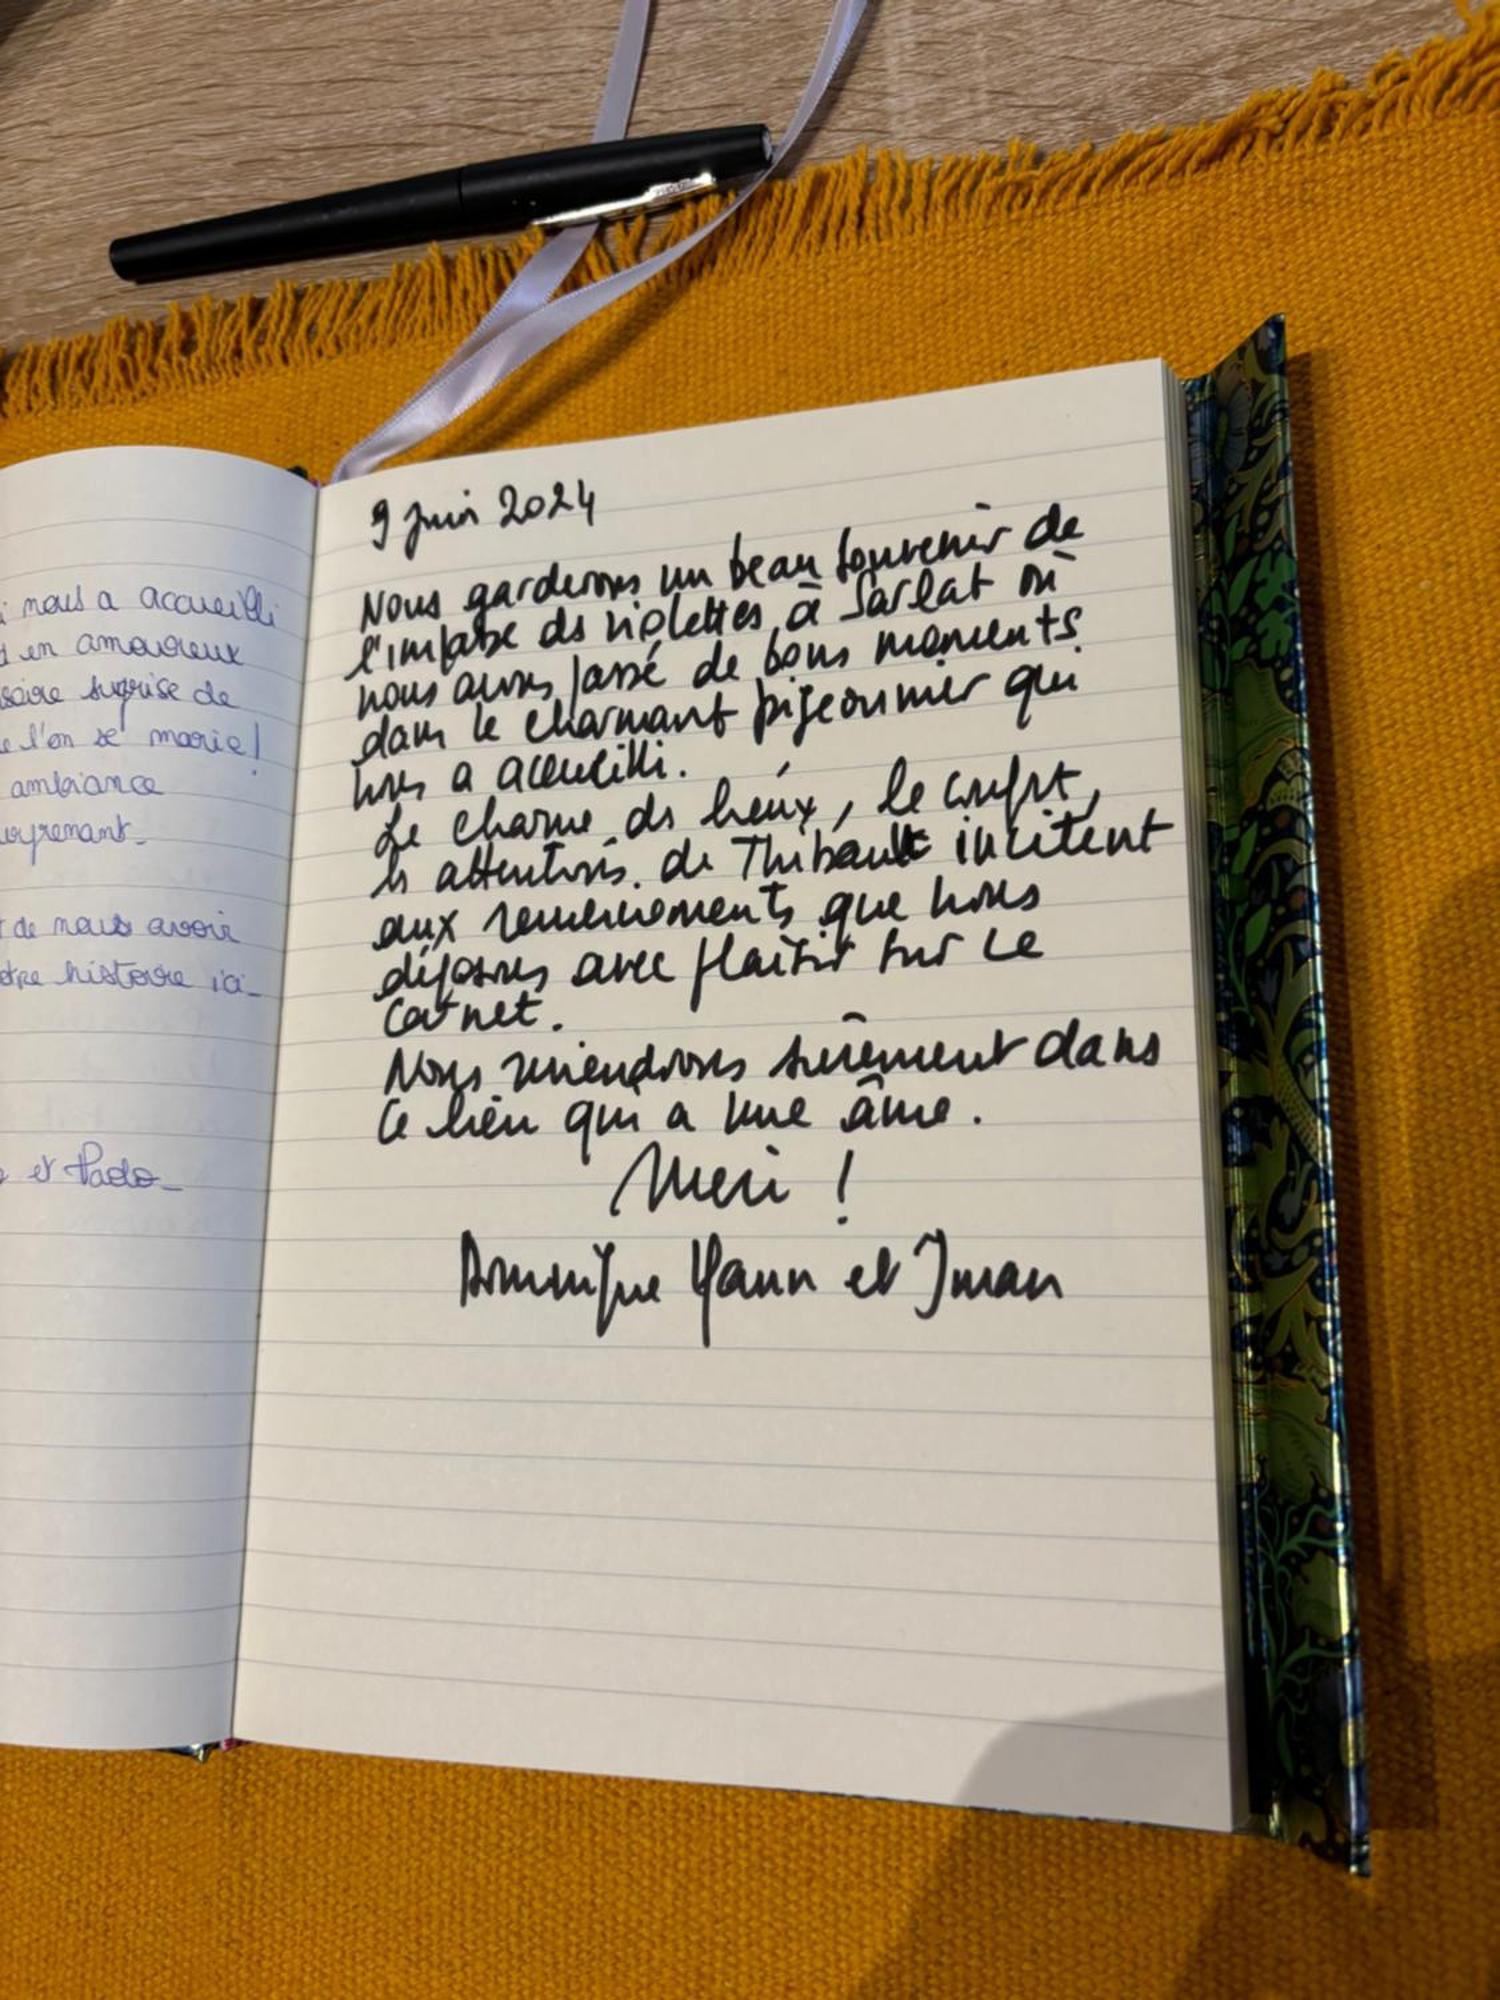 nous a accueilli
en amoureux
surprise de
l'on se marie !
ambiance
de nous avoir
histoire ici_
et Pado_
9 Juin 2024
Nous garderons un beau souvenir de
l'impasse des violettes à Sarlat où
nous avons passé de bons moments
dans le charmant pigeonnier qui
nous a accueilli.
Le charme des lieux, le confort,
les attentions de Thibault incitent
aux remerciements que nous
déposons avec plaisir sur ce
carnet.
Nous reviendrons sûrement dans
ce lieu qui a une âme.
Merci !
Dominique Yann et Iman